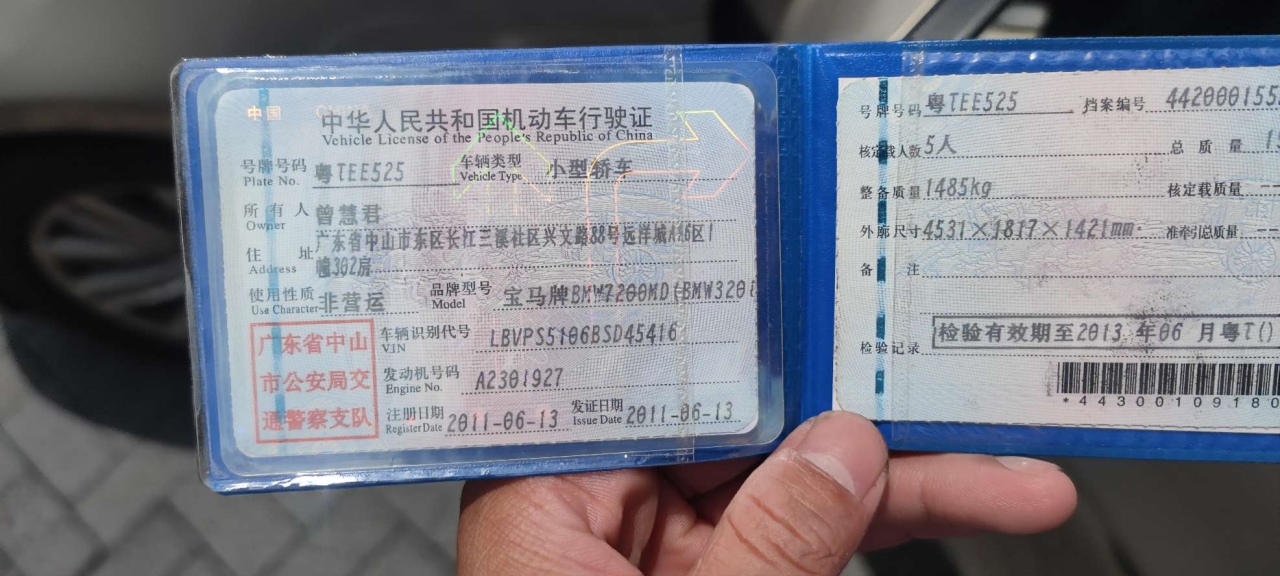 中国
中华人民共和国机动车行驶证
Vehicle License of the People's Republic of China
号牌号码 粤TEE525 车辆类型 小型轿车
Plate No. Vehicle Type
所有人 曾慧君
Owner
住址 广东省中山市东区长江三溪社区兴文路88号远洋城A16区1
Address 幢302房
使用性质 非营运 品牌型号 宝马牌BMW7200MD(BMW320i
Use Character Model
广东省中山
市公安局交
通警察支队
车辆识别代号 LBVPS5106BSD45416
VIN
发动机号码 A2301927
Engine No.
注册日期 2011-06-13 发证日期 2011-06-13
Register Date Issue Date
号牌号码 粤TEE525 档案编号 4420001555
核定载人数 5人 总质量
整备质量 1485kg 核定载质量 --
外廓尺寸 4531×1817×1421mm 准牵引总质量 --
备注
检验记录 检验有效期至2013年06月粤T()
*44300109180